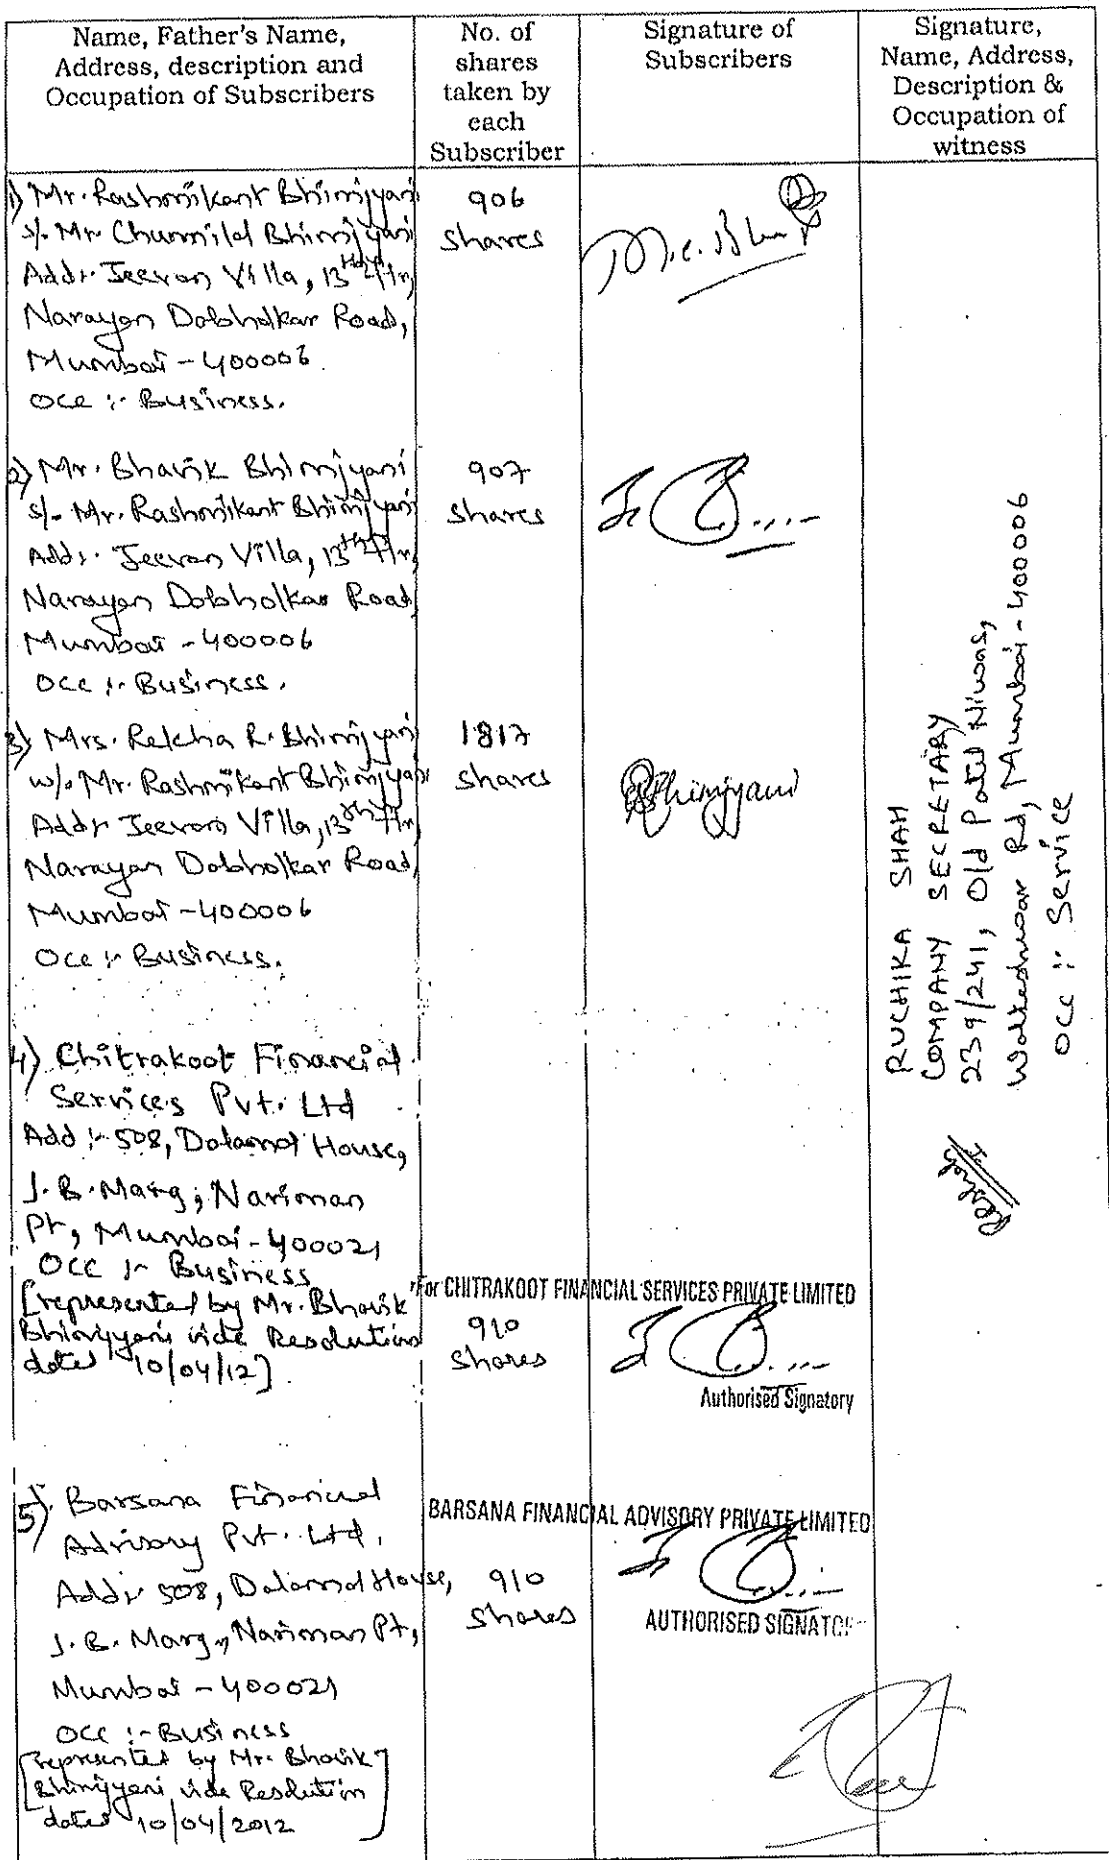 Name, Father's Name,
Address, description and
Occupation of Subscribers
No. of
shares
taken by
each
Subscriber
Signature of
Subscribers
Signature,
Name, Address,
Description &
Occupation of
witness
1) Mr. Rashmikant Bhimjyani
s/. Mr Chunnilal Bhimjyani
Addr. Jeevan Villa, 13th Flr,
Narayan Dabholkar Road,
Mumbai - 400006.
Occ :- Business.
906
shares
2) Mr. Bhavik Bhimjyani
s/- Mr. Rashmikant Bhimjyani
Addr. Jeevan Villa, 13th Flr,
Narayan Dabholkar Road
Mumbai - 400006
Occ :- Business.
907
shares
3) Mrs. Rekha R. Bhimjyani
w/. Mr. Rashmikant Bhimjyani
Addr Jeevan Villa, 13th Flr,
Narayan Dabholkar Road,
Mumbai - 400006
Occ :- Business.
1817
shares
Bhimjyani
4) Chitrakoot Financial
Services Pvt. Ltd
Add :- 508, Dalamal House,
J. B. Marg, Nariman
Pt, Mumbai - 400021
Occ :- Business
[represented by Mr. Bhavik
Bhimjyani vide Resolution
dated 10/04/12]
910
shares
For CHITRAKOOT FINANCIAL SERVICES PRIVATE LIMITED
Authorised Signatory
5) Barsana Financial
Advisory Pvt. Ltd,
Addr 508, Dalamal House,
J. B. Marg, Nariman Pt,
Mumbai - 400021
Occ :- Business
[represented by Mr. Bhavik
Bhimjyani vide Resolution
dated 10/04/2012]
910
shares
BARSANA FINANCIAL ADVISORY PRIVATE LIMITED
AUTHORISED SIGNATO
RUCHIKA SHAH
COMPANY SECRETARY
239/241, Old Patel Niwas,
Walkeshwar Rd, Mumbai - 400006
Occ :- Service